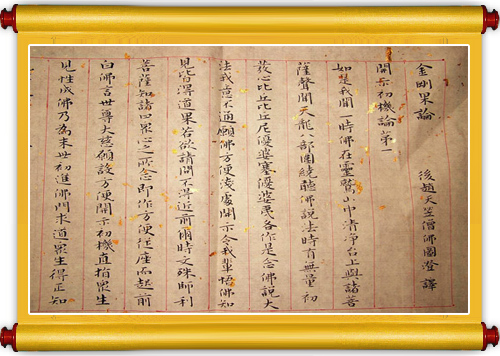 金剛果論　後趙天竺僧佛圖澄 譯
開示初機論第一
如是我聞一時佛在靈鷲山中清淨台上與諸菩
薩聲聞天龍八部圍繞聽佛說法時有無量初
發心比丘比丘尼優婆塞優婆夷各作是念佛說大
法我意不通願佛方便淺處開示令我輩悟佛知
見皆得道果各欲請問不得近前爾時文殊師利
菩薩知諸四眾心之所念即作方便從座而起前
白佛言世尊大慈願設方便開示初機直指眾生
見性成佛乃為末世初進佛門求道眾生得正知